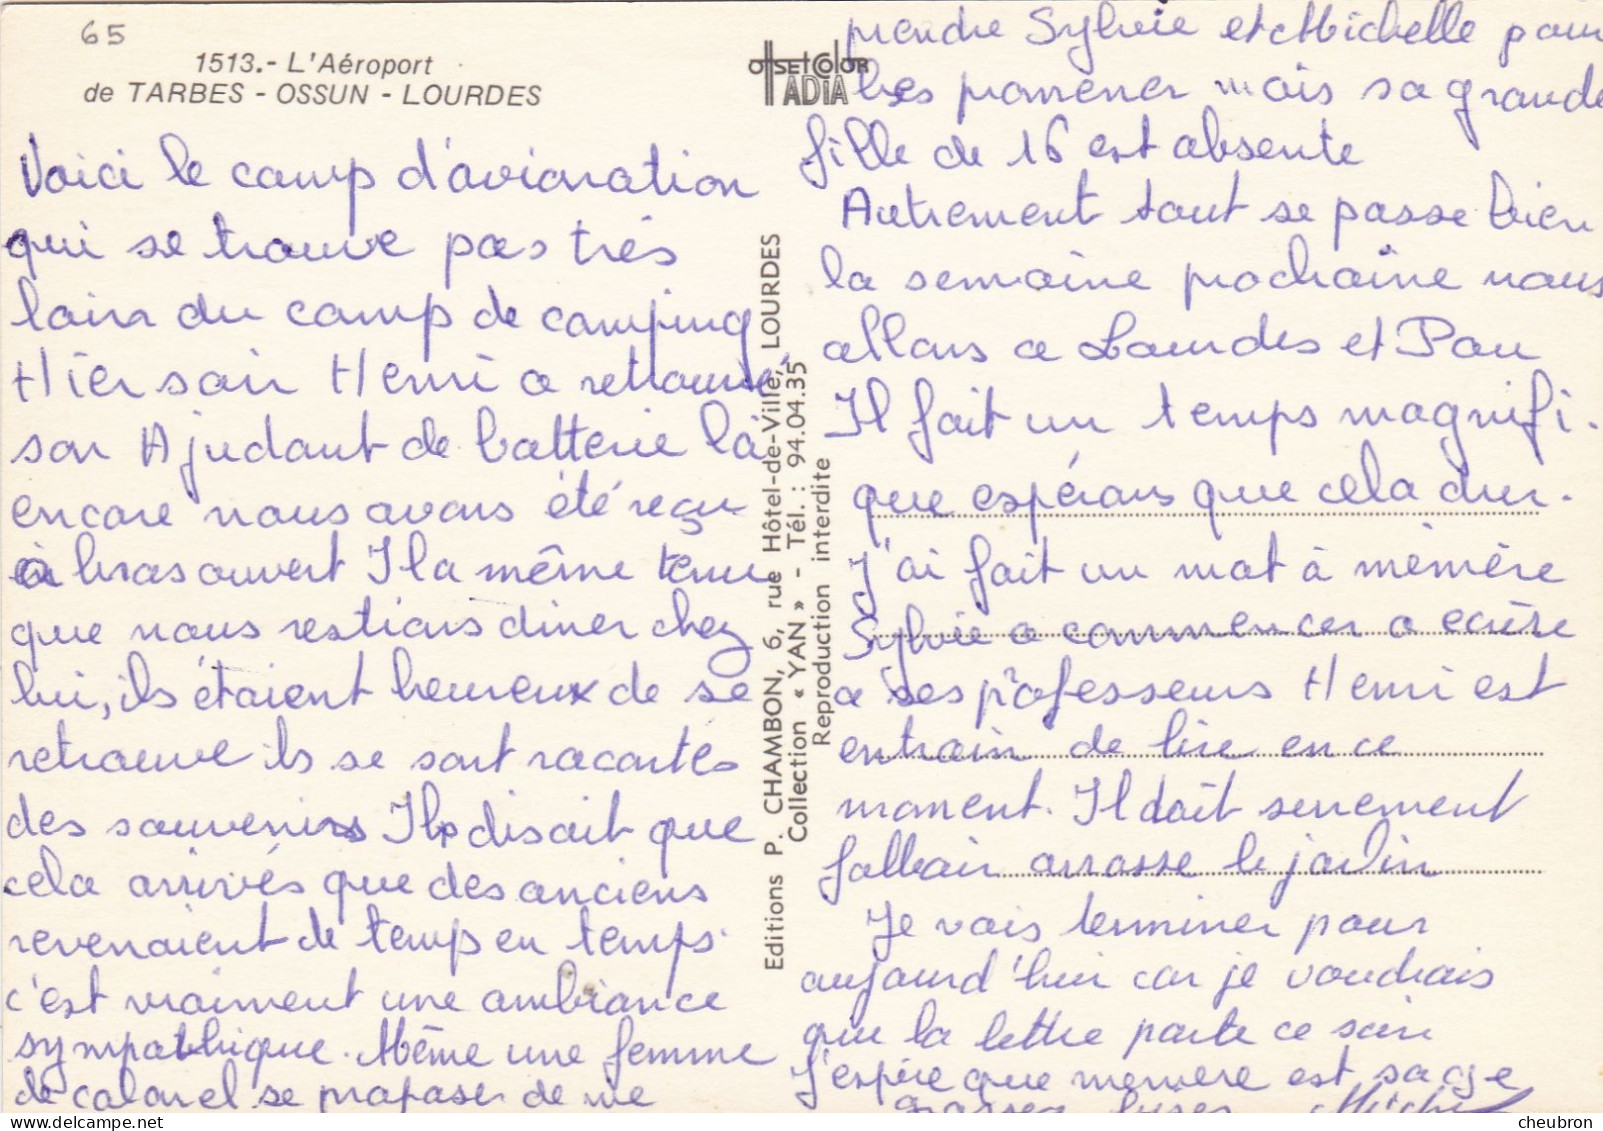 65
1513.- L'Aéroport
de TARBES - OSSUN - LOURDES
Voici le camp d'avionation
qui se trouve pas très
loin du camp de camping
Hier soir Henri a retrouvé
son Ajudant de batterie là
encore nous avons été reçu
à bras ouvert Il a même tenu
que nous restions diner chez
lui, ils étaient heureux de se
retrouve ils se sont racontés
des souvenirs Ils disait que
cela arrivés que des anciens
revenaient de temps en temps
c'est vraiment une ambiance
sympathique. Même une femme
de colonel se propaser de me
OFFSET COLOR
ADIA
Editions P. CHAMBON, 6, rue Hôtel-de-Ville, LOURDES
Collection « YAN » - Tél. : 94.04.35
Reproduction interdite
prendre Sylvie et Michelle pour
les promener mais sa grande
fille de 16 est absente
Autrement tout se passe bien
la semaine prochaine nous
allons a Lourdes et Pau
Il fait un temps magnifi-
que espérons que cela dur.
J'ai fait un mot à mémère
Sylvie a commencer a ecrire
a ses professeurs Henri est
entrain de lire en ce
moment. Il doit serrement
falloir arrosse le jardin
Je vais terminer pour
aujourd'hui car je voudrais
que la lettre parte ce soir
J'espère que memere est sage
grosses bises Michel
cheubron.com